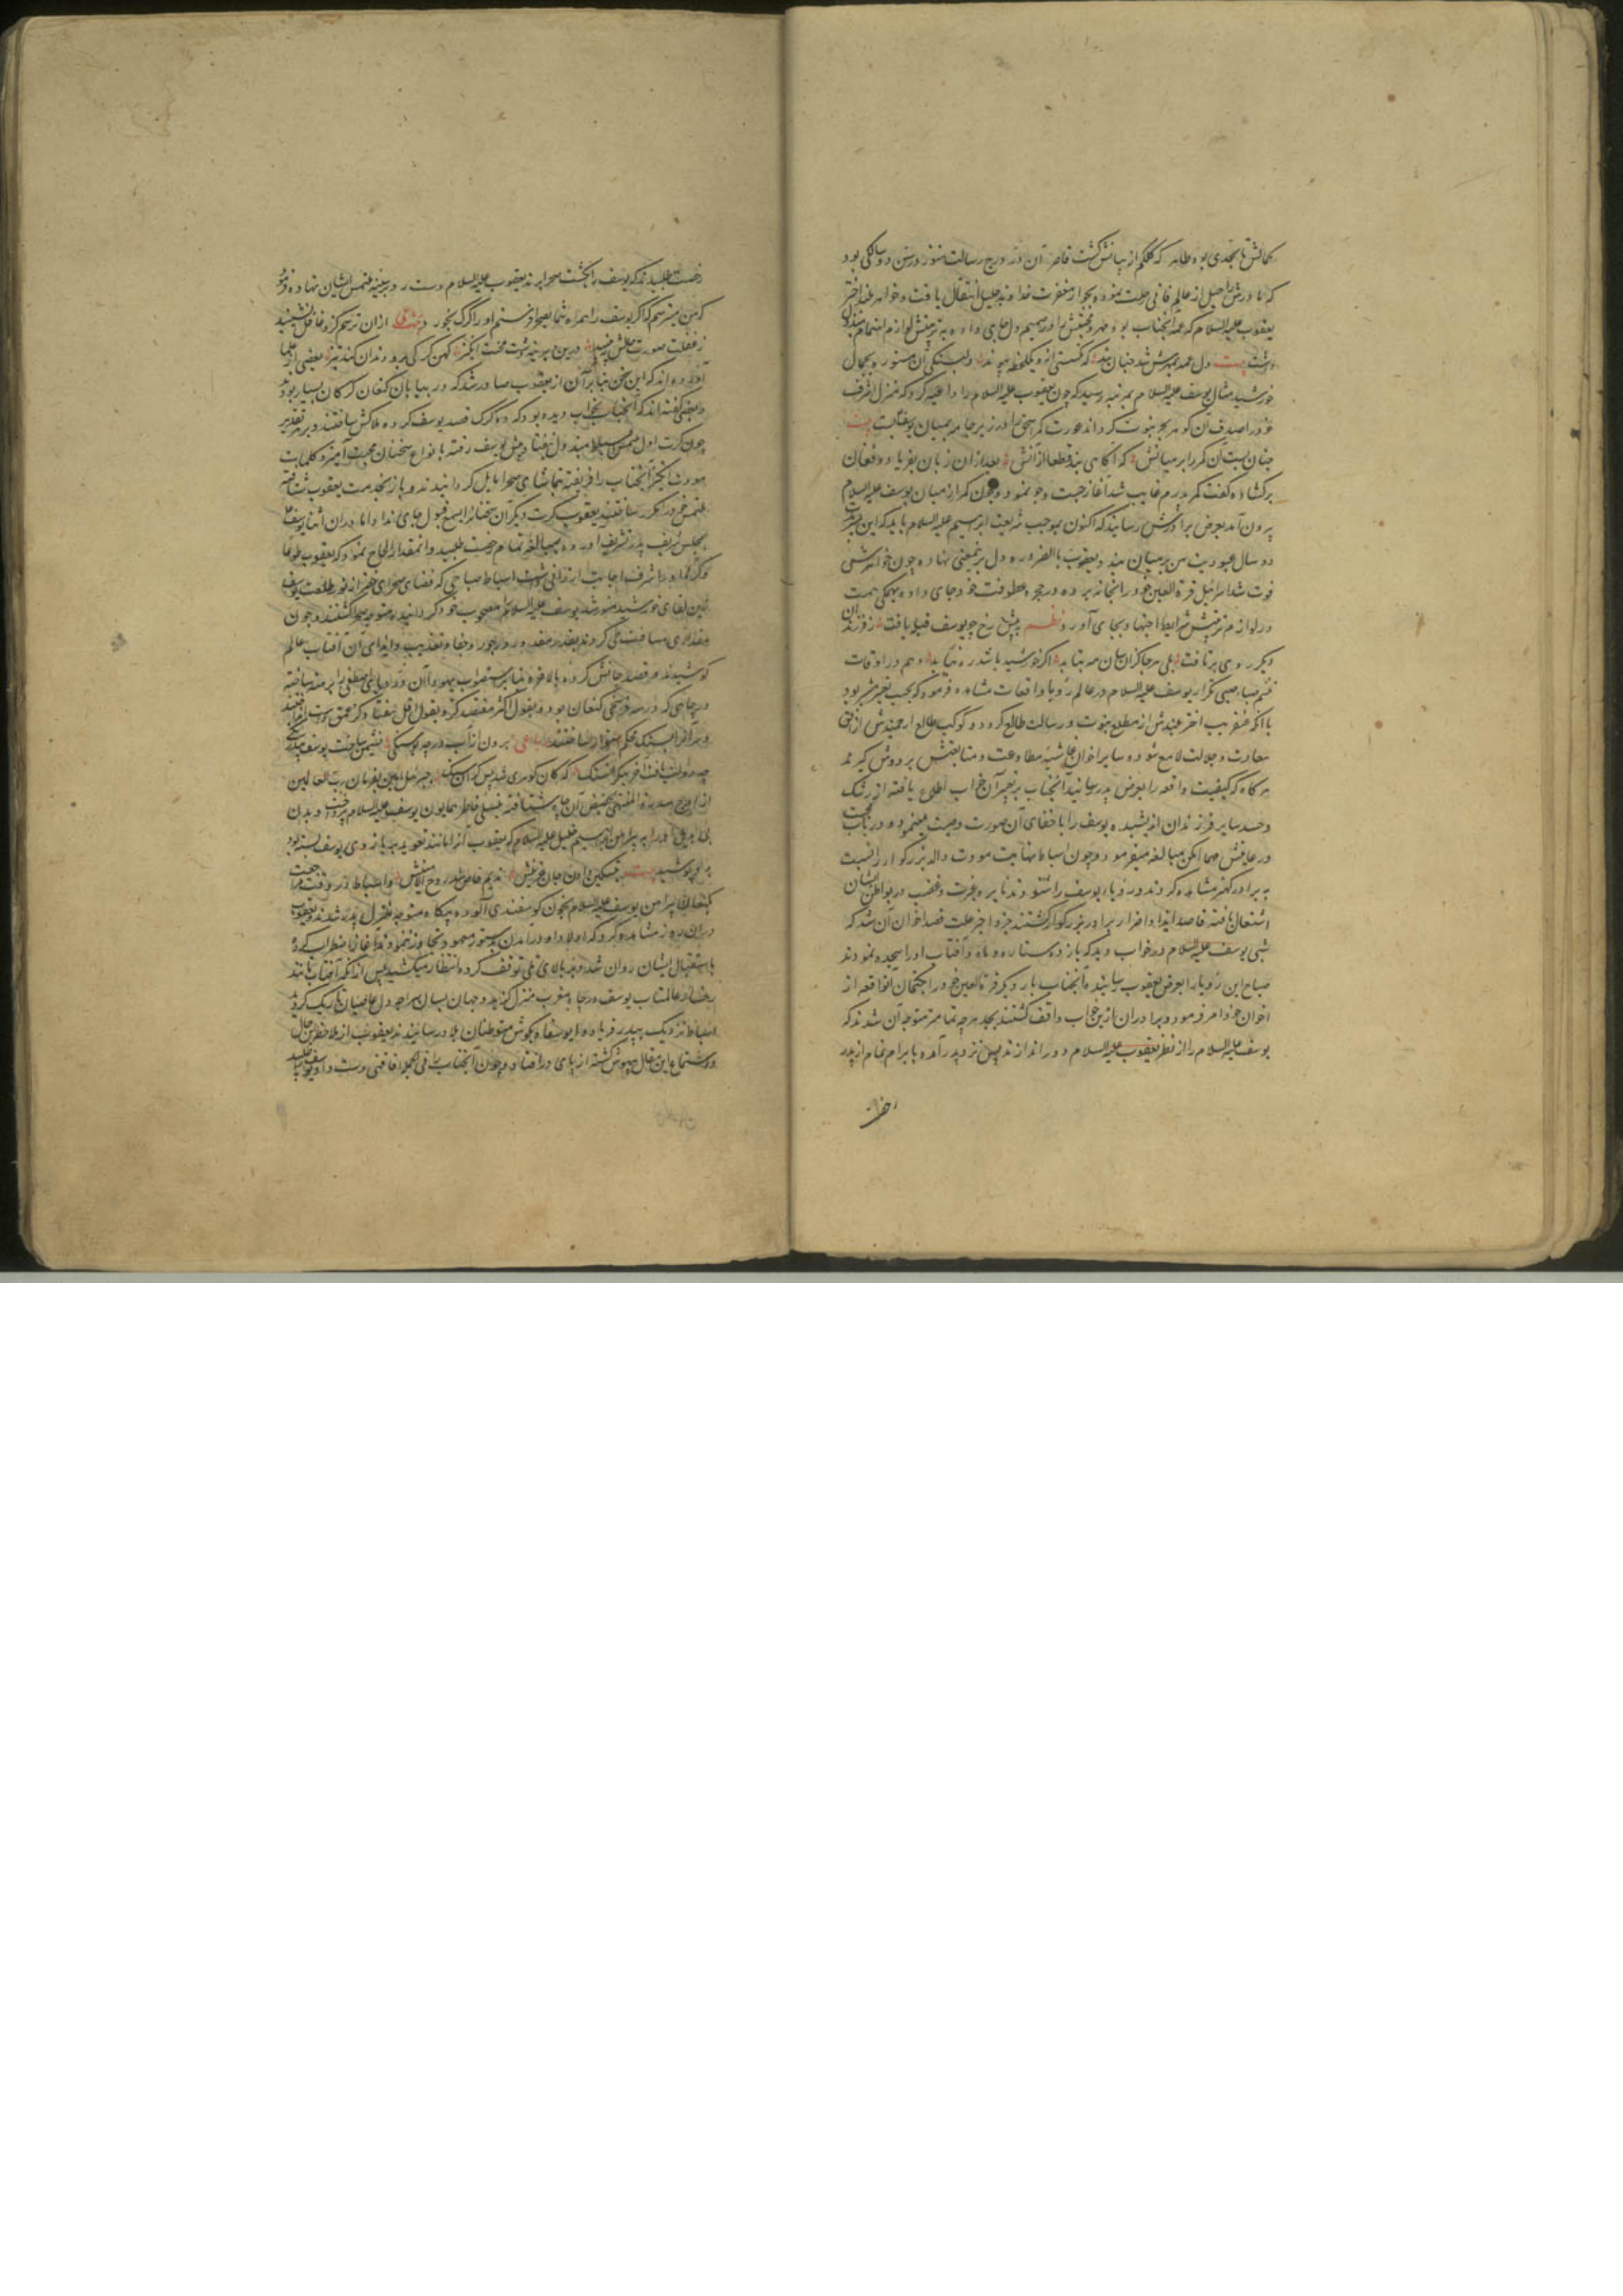 کمالش تا بحدی بود ظاهر که کلکم از بیانش گشت قاصر آن در درج رسالت هنوز در سن دو سالگی بود
که مادرش راحیل از عالم فانی رحلت نموده بجوار مغفرت خداوند جلیل انتقال یافت و خواهر
یعقوب علیه السلام که عمه آنجناب بود مهر و محبتش در صمیم دل جای داده به تربیتش لوازم اهتمام مبذول
داشت بیت دل عمه بمهرش شد چنان بند که نگسستی ازو یکلحظه پیوند و دلبستگی آن مستوره بجمال
خورشید مثال یوسف علیه السلام بمرتبه رسید که چون یعقوب علیه السلام را داعیه کرد که منزل شرف
خود را صدف آن گوهر بحر نبوت گرداند عورت کمر اسحق را در زیر جامه بمیان یوسف بست بیت
چنان بست آن کمر را بر میانش که آگاهی نشد قطعا از آنش بعد از آن زبان بفریاد و فغان
برگشاده گفت کمر پدرم غایب شد آغاز جست و جو نمود و چون کمر از میان یوسف علیه السلام
بیرون آمد بعرض برادرش رسانید که اکنون بموجب شریعت ابراهیم علیه السلام باید که این پسر
دو سال عبودیت من بر میان بندد و یعقوب بالضروره دل برینمعنی نهاده چون خواهرش
فوت شد اسرائیل قرة العین خود را بخانه برده در حجر عطوفت خود جای داده بهمگی همت
در لوازم تربیتش شرایط اجتهاد بجای آورد نظم به پیش رخ چو یوسف قبله یافت ز فرزندان
دیگر روی برتافت بلی هر جا کزان سان مه بتابد اگر خورشید باشد ره نیابد و هم در اوقات
صبی تکرار یوسف علیه السلام در عالم رؤیا واقعات مشاهده فرمود که بحسب تعبیر مشعر بود
با آنکه عنقریب اختر بلندش از مطلع نبوت و رسالت طالع گردد و کوکب طالع ارجمندش از افق
سعادت و جلالت لامع شود و سایر اخوان غاشیه مطاوعت و متابعتش بر دوش گیرند
هر گاه که کیفیت واقعه را بعرض پدر رسانید آنجناب بر تعبیر آن خواب اطلاع یافته از رشک
و حسد سایر فرزندان اندیشیده یوسف را باخفای آن صورت وصیت مینمود و در باب محبت
و رعایتش مهما امکن مبالغه میفرمود و چون اسباط نهایت مودت والد بزرگوار را نسبت
به برادر کهتر مشاهده کردند و رؤیای یوسف را شنودند نایره غیرت و غضب در بواطن ایشان
اشتعال یافته قاصد ایذا و اضرار برادر بزرگوار گشتند و جزو اخیر علت قصد اخوان آن شد که
شبی یوسف علیه السلام در خواب دید که یازده ستاره و ماه و آفتاب او را سجده نمودند
صباح این رؤیا را بعرض یعقوب رسانید و آنجناب بار دیگر قرة العین خود را بکتمان آنواقعه از
اخوان خود امر فرمود و برادران ازین خواب واقف گشتند بجد هر چه تمامتر متوجه آن شدند که
یوسف علیه السلام را از نظر یعقوب علیه السلام دور اندازند پس نزد پدر آمده بابرام تمام از پدر
رخصت طلبیدند که یوسف را بگشت صحرا برند یعقوب علیه السلام دست رد بر سینه ملتمس ایشان نهاده فرمود
که من میترسم که اگر یوسف را همراه شما بصحرا فرستم او را گرگ بخورد از آن ترسم کزو غافل نشینید
ز غفلت صورت حالش نبینید درین دیرینه دشت محنت انگیز کهن گرگی برو دندان کند تیز بعضی از علما
آورده اند که این سخن بنابر آن از یعقوب صادر شد که در بیابان کنعان گرگان بسیار بودند
و بعضی گفته اند که آنجناب بخواب دیده بود که ده گرگ قصد یوسف کرده هلاکش ساختند و بر هر تقدیر
چون کرت اول ملتمس اسباط مبذول نیفتاد پیش یوسف رفته بانواع سخنان محبت آمیز و کلمات
مودت انگیز آنجناب را فریفته بتماشای صحرا مایل گردانیدند و باز بخدمت یعقوب شتافته
ملتمس خود را مکرر ساختند یعقوب کرت دیگر آن سخنان را بسمع قبول جای نداد اما در آن اثنا یوسف
بمجلس شریف پدر تشریف آورده بمبالغه تمام رخصت طلبید و آنمقدار الحاح نمود که یعقوب طوعا
و کرها او را شرف اجابت ارزانی داشت اسباط صباحی که فضای صحرای خضر از نور طلعت یوسف
زرین لقای خورشید منور شد یوسف علیه السلام را مصحوب خود گردانیده متوجه صحرا گشتند و چون
مقداری مسافت طی کردند بقدر مقدور در جور و جفا و تعذیب و ایذای آن آفتاب عالم
کوشیدند و قصد جانش کرده بالاخره بنابر استصواب یهودا آن در دریای اصطفا را برهنه ساخته
در چاهی که در سه فرسخی کنعان بود و بقول اکثر هفصد گز و بقول اقل هفتاد گز عمق داشت انداختند
و سر آنرا بسنگ محکم استوار ساختند رباعی برون از آب در چه بود سنگی نشیمن ساخت یوسف بیدرنگی
چه دولت یافت آخر بنگر آن سنگ که کان گوهری شد بس گران سنگ جبرئیل امین بفرمان رب العالمین
از اوج سدرة المنتهی بحضیض آن چاه شتافته بتسلی خاطر همایون یوسف علیه السلام پرداخت و بدن
بی بدیل او را به پیراهن ابراهیم خلیل علیه السلام که یعقوب آنرا مانند تعویذ بر بازوی یوسف بسته بود
بپوشید بیت بتسکین دادن جان حزینش ندیم خاص شد روح الامینش و اسباط در وقت مراجعت
بکنعان پیراهن یوسف علیه السلام بخون گوسفندی آلوده بیگاه متوجه منزل پدر شدند و یعقوب
در آن روز مشاهده کرد که اولاد او در آمدن بدستور معهود تجاوز نمودند آغاز اضطراب کرده
باستقبال ایشان روان شد و بر بالای تلی توقف کرده انتظار میکشید پس از آنکه آفتاب مانند
رخسار عالمتاب یوسف در چاه مغرب منزل گزید و جهان بسان چاه و دل عاصیان تاریک گردید
اسباط نزدیک پدر فریاد وا یوسفاه بگوش متوطنان بلاد رسانیدند یعقوب از ملاحظه این حال
و استماع این مقال بیهوش گشته از پای درافتاد و چون آنجناب را فی الجمله افاقتی دست داد یوسف را طلبید